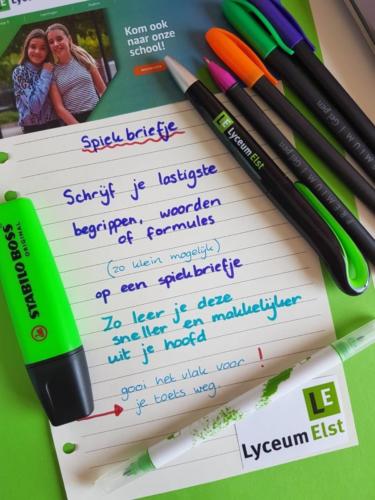 Kom ook
naar onze
school!
Spiekbriefje
Schrijf je lastigste
begrippen, woorden
of formules
(zo klein mogelijk)
op een spiekbriefje
Zo leer je deze
sneller en makkelijker
uit je hoofd
gooi het vlak voor !
je toets weg.
STABILO BOSS
ORIGINAL
LE Lyceum Elst
LE
Lyceum Elst